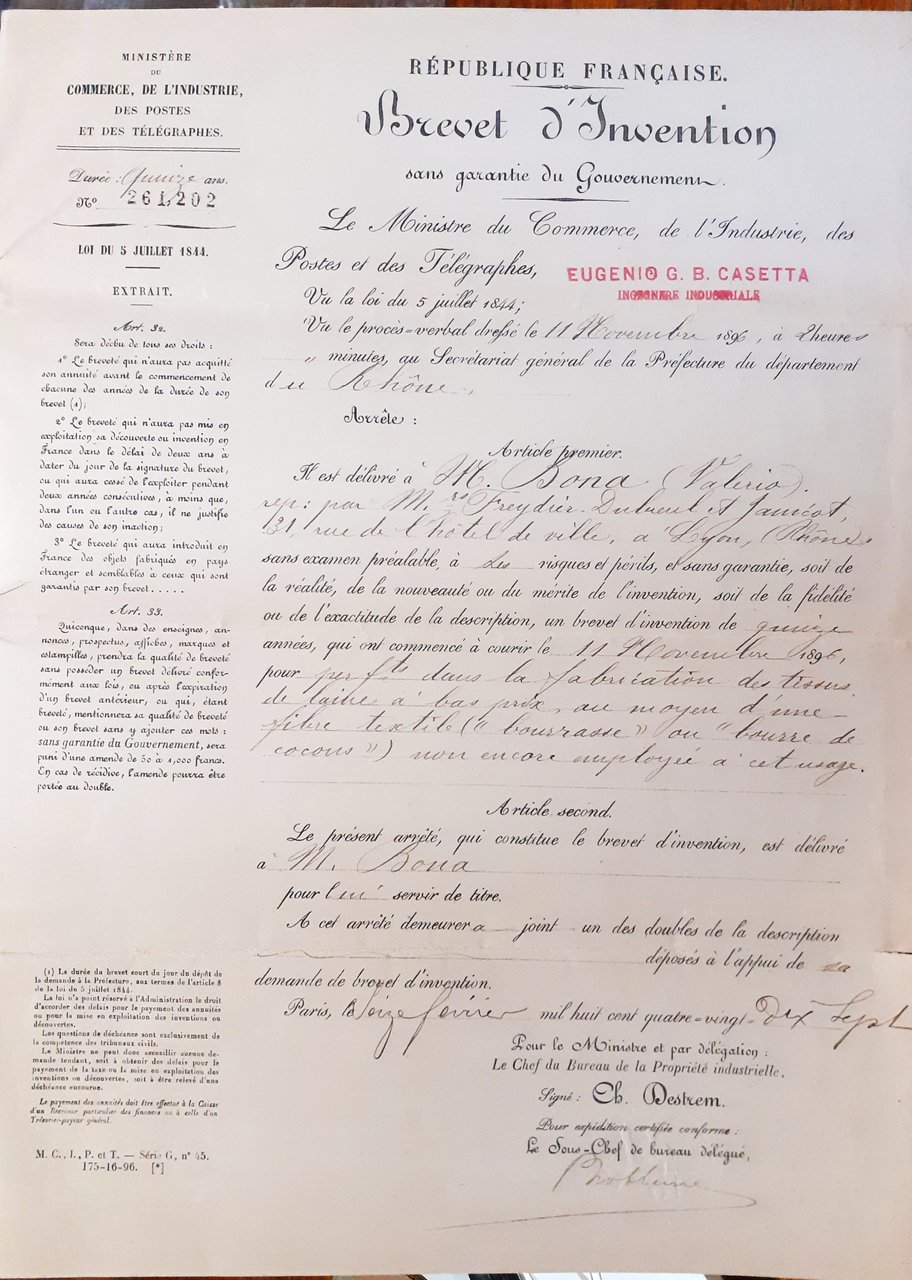 MINISTÈRE
DU
COMMERCE, DE L'INDUSTRIE,
DES POSTES
ET DES TÉLÉGRAPHES.
Durée : Quinze ans.
N° 261,202
LOI DU 5 JUILLET 1844.
EXTRAIT.
Art. 32.
Sera déchu de tous ses droits :
1° Le breveté qui n'aura pas acquitté
son annuité avant le commencement de
chacune des années de la durée de son
brevet (1);
2° Le breveté qui n'aura pas mis en
exploitation sa découverte ou invention en
France dans le délai de deux ans à
dater du jour de la signature du brevet,
ou qui aura cessé de l'exploiter pendant
deux années consécutives, à moins que,
dans l'un ou l'autre cas, il ne justifie
des causes de son inaction;
3° Le breveté qui aura introduit en
France des objets fabriqués en pays
étranger et semblables à ceux qui sont
garantis par son brevet.....
Art. 33.
Quiconque, dans des enseignes, an-
nonces, prospectus, affiches, marques et
estampilles, prendra la qualité de breveté
sans posséder un brevet délivré confor-
mément aux lois, ou après l'expiration
d'un brevet antérieur, ou qui, étant
breveté, mentionnera sa qualité de breveté
ou son brevet sans y ajouter ces mots :
sans garantie du Gouvernement, sera
puni d'une amende de 50 à 1,000 francs.
En cas de récidive, l'amende pourra être
portée au double.
(1) La durée du brevet court du jour du dépôt de
la demande à la Préfecture, aux termes de l'article 8
de la loi du 5 juillet 1844.
La loi n'a point réservé à l'Administration le droit
d'accorder des délais pour le payement des annuités
ou pour la mise en exploitation des inventions ou
découvertes.
Les questions de déchéance sont exclusivement de
la compétence des tribunaux civils.
Le Ministre ne peut donc accueillir aucune de-
mande tendant, soit à obtenir des délais pour le
payement de la taxe ou la mise en exploitation des
inventions ou découvertes, soit à être relevé d'une
déchéance encourue.
Le payement des annuités doit être effectué à la Caisse
d'un Receveur particulier des finances ou à celle d'un
Trésorier-payeur général.
M. C., I., P. et T. — Série G, n° 45.
175-16-96. [*]
RÉPUBLIQUE FRANÇAISE.
Brevet d'Invention
sans garantie du Gouvernement.
Le Ministre du Commerce, de l'Industrie, des
Postes et des Télégraphes,
EUGENIO G. B. CASETTA
INGEGNERE INDUSTRIALE
Vu la loi du 5 juillet 1844;
Vu le procès-verbal dressé le 11 Novembre 1896, à 2 heures
" minutes, au Secrétariat général de la Préfecture du département
du Rhône,
Arrête :
Article premier.
Il est délivré à M. Bona (Valerio).
rep: par M.rs Freydier-Dubreul et Janicot,
31, rue de l'hôtel de ville, à Lyon, (Rhône)
sans examen préalable, à ses risques et périls, et sans garantie, soit de
la réalité, de la nouveauté ou du mérite de l'invention, soit de la fidélité
ou de l'exactitude de la description, un brevet d'invention de quinze
années, qui ont commencé à courir le 11 Novembre 1896,
pour perf.ts dans la fabrication des tissus
de laine à bas prix, au moyen d'une
fibre textile ("bourrasse" ou "bourre de
cocons") non encore employée à cet usage.
Article second.
Le présent arrêté, qui constitue le brevet d'invention, est délivré
à M. Bona
pour lui servir de titre.
A cet arrêté demeurera joint un des doubles de la description
déposés à l'appui de sa
demande de brevet d'invention.
Paris, le Seize février mil huit cent quatre-vingt-dix sept
Pour le Ministre et par délégation :
Le Chef du Bureau de la Propriété industrielle,
Signé : Ch. Destrem.
Pour expédition certifiée conforme :
Le Sous-Chef de bureau délégué,